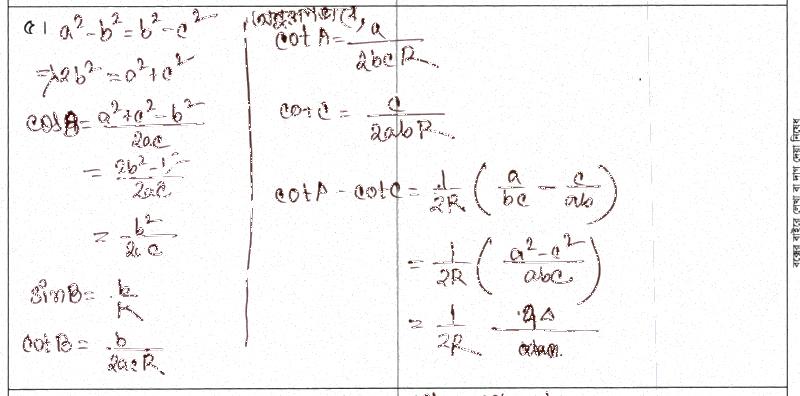 ৫। a² - b² = b² - c²
⇒ 2b² = a² + c²
cos B = (a² + c² - b²) / 2ac
= (2b² - b²) / 2ac
= b² / 2ac
sin B = b / R
cot B = b / 2acR
অনুরূপভাবে,
cot A = a / 2bcR
cot C = c / 2abR
cot A - cot C = 1/2R (a/bc - c/ab)
= 1/2R ((a² - c²) / abc)
= 1/2R 4Δ
বক্সের বাইরে লেখা বা দাগ দেয়া নিষেধ